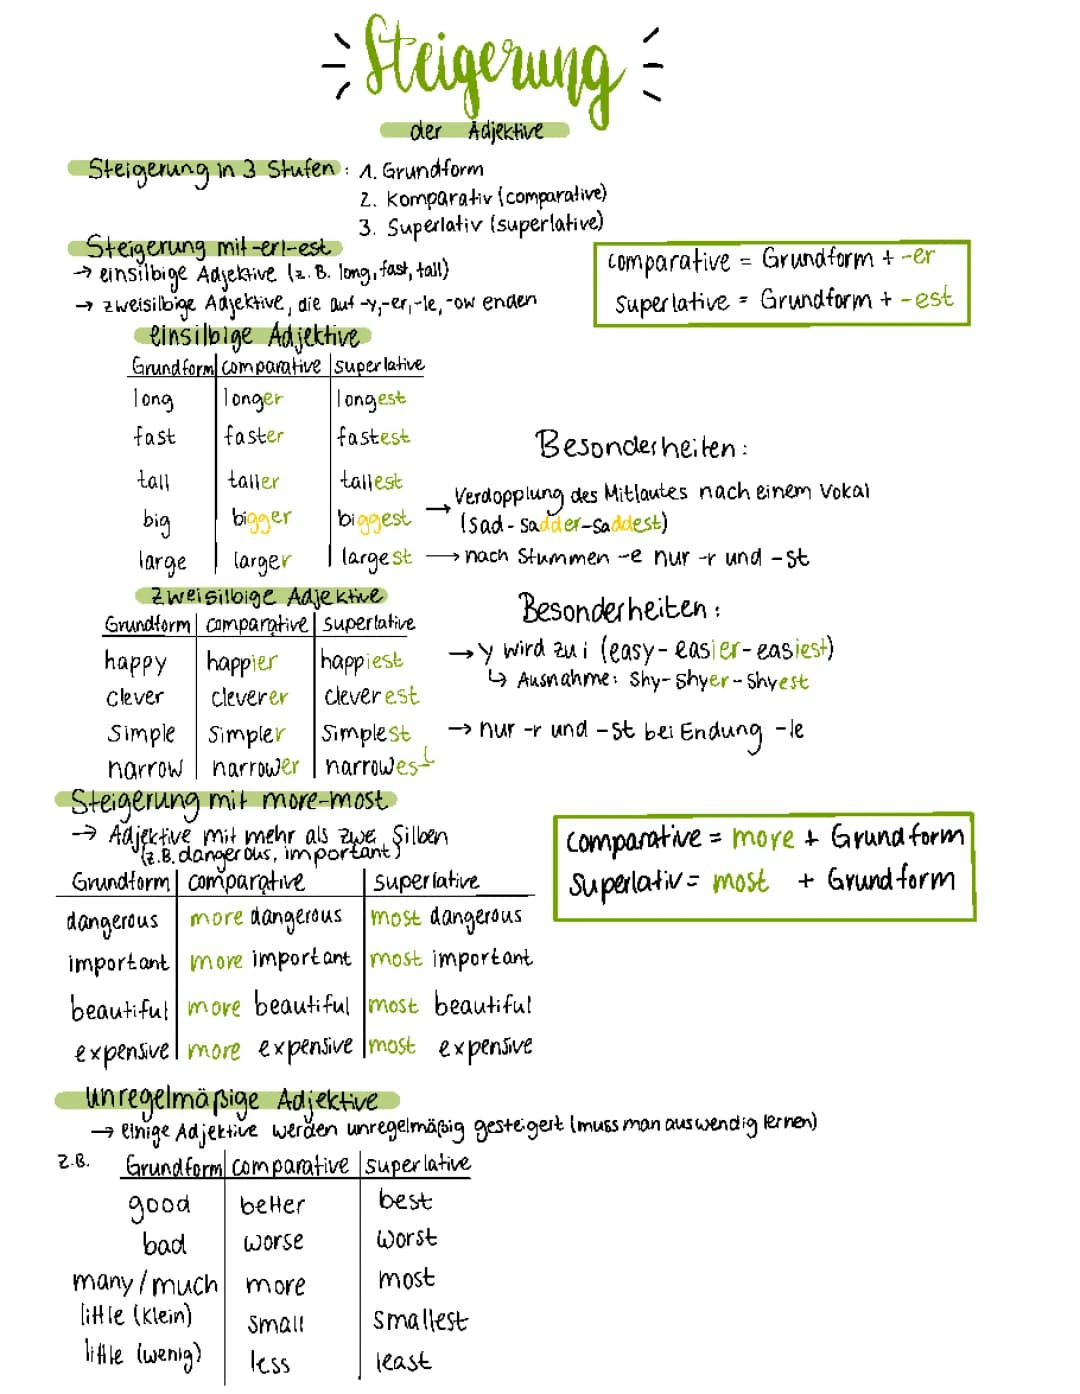 Steigerung
der Adjektive
Steigerung in 3 Stufen: 1. Grundform
2. Komparativ (comparative)
3. Superlativ (superlative)
Steigerung mit -er/-est
→ einsilbige Adjektive (z.B. long, fast, tall)
→ zweisilbige Adjektive, die auf -y, -er, -le, -ow enden
comparative = Grundform + -er
superlative = Grundform + -est
einsilbige Adjektive
Grundform comparative superlative
long longer longest
fast faster fastest
tall taller tallest
big bigger biggest
large larger largest
Besonderheiten:
→ Verdopplung des Mitlautes nach einem Vokal
(sad - sadder - saddest)
→ nach Stummen -e nur -r und -st
Zweisilbige Adjektive
Grundform comparative superlative
happy happier happiest
clever cleverer cleverest
simple simpler simplest
narrow narrower narrowest
Besonderheiten:
→ y wird zu i (easy - easier - easiest)
↳ Ausnahme: shy - shyer - shyest
→ nur -r und -st bei Endung -le
Steigerung mit more-most
→ Adjektive mit mehr als zwe Silben
(z.B. dangerous, important)
comparative = more + Grundform
Superlativ = most + Grundform
Grundform comparative superlative
dangerous more dangerous most dangerous
important more important most important
beautiful more beautiful most beautiful
expensive more expensive most expensive
unregelmäßige Adjektive
→ einige Adjektive werden unregelmäßig gesteigert (muss man auswendig lernen)
z.B. Grundform comparative superlative
good better best
bad worse worst
many/much more most
little (klein) small smallest
little (wenig) less least